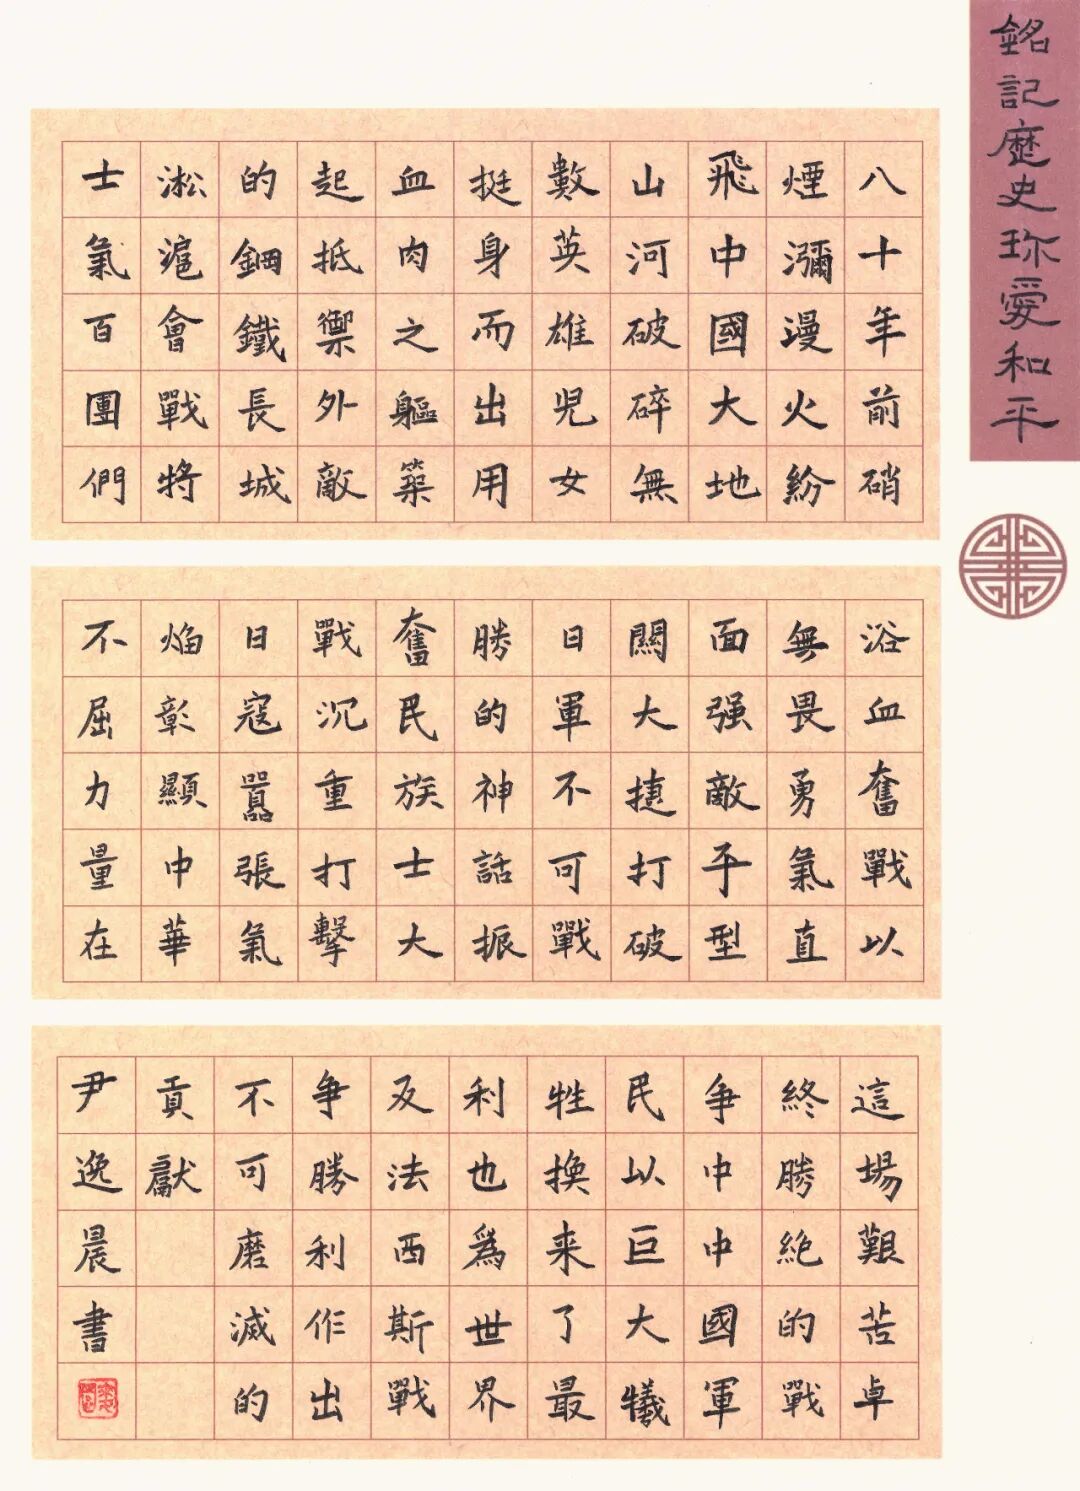 銘記歷史珎愛和平
八十年前硝
煙瀰漫火紛
飛中國大地
山河破碎無
數英雄兒女
挺身而出用
血肉之軀築
起抵禦外敵
的鋼鐵長城
淞滬會戰將
士氣百團們
浴血奮戰以
無畏勇氣直
面强敵平型
關大捷打破
日軍不可戰
勝的神話振
奮民族士大
戰沉重打擊
日寇囂張氣
焰彰顯中華
不屈力量在
這場艱苦卓
終勝絶的戰
爭中中國軍
民以巨大犧
牲換来了最
利也爲世界
反法西斯戰
爭勝利作出
不可磨滅的
貢獻
尹逸晨書